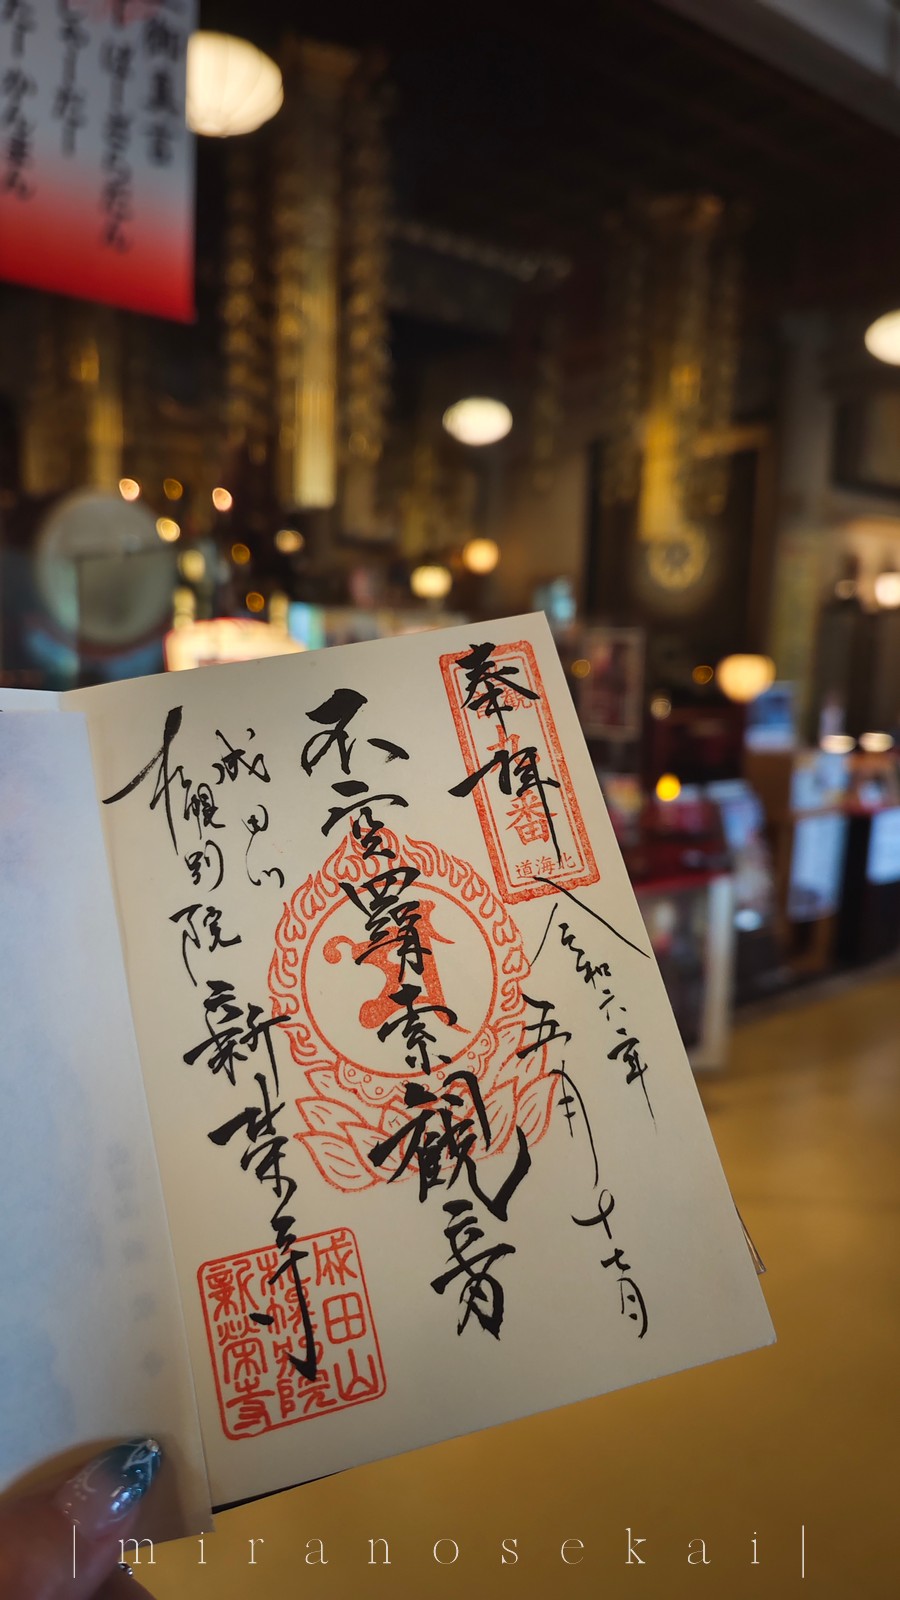 御真言
奉拝
番
北海道
令和六年
五月十七日
不空羂索観音
成田山
札幌別院新栄寺
成田山
札幌別院
新栄寺
|miranosekai|